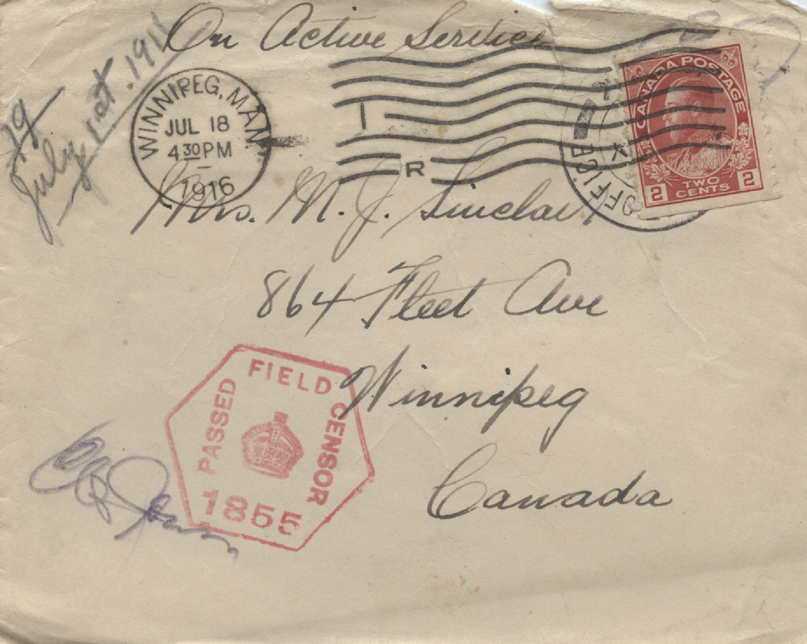 On Active Service
July 1st. 191
WINNIPEG, MAN.
JUL 18
4 30 PM
1916
I
R
OFFICE
CANADA POSTAGE
2 TWO CENTS 2
Mrs. M. J. Sinclair
864 Fleet Ave
Winnipeg
Canada
PASSED FIELD CENSOR
1855